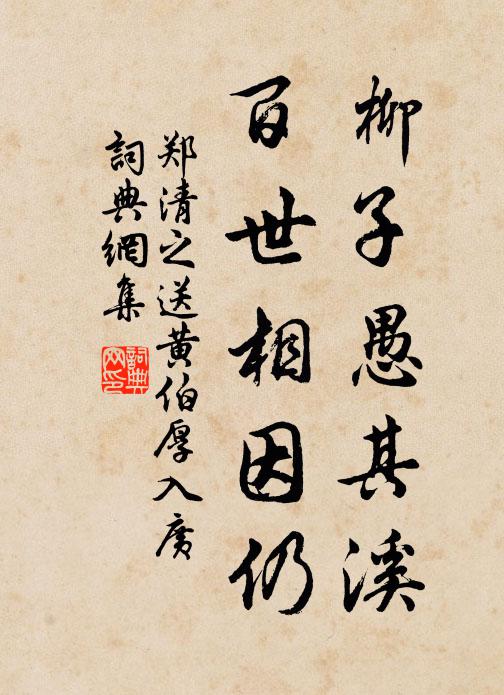 柳子愚其溪
百世相因仍
郑清之送黄伯厚入广
词典網集
詞典網印